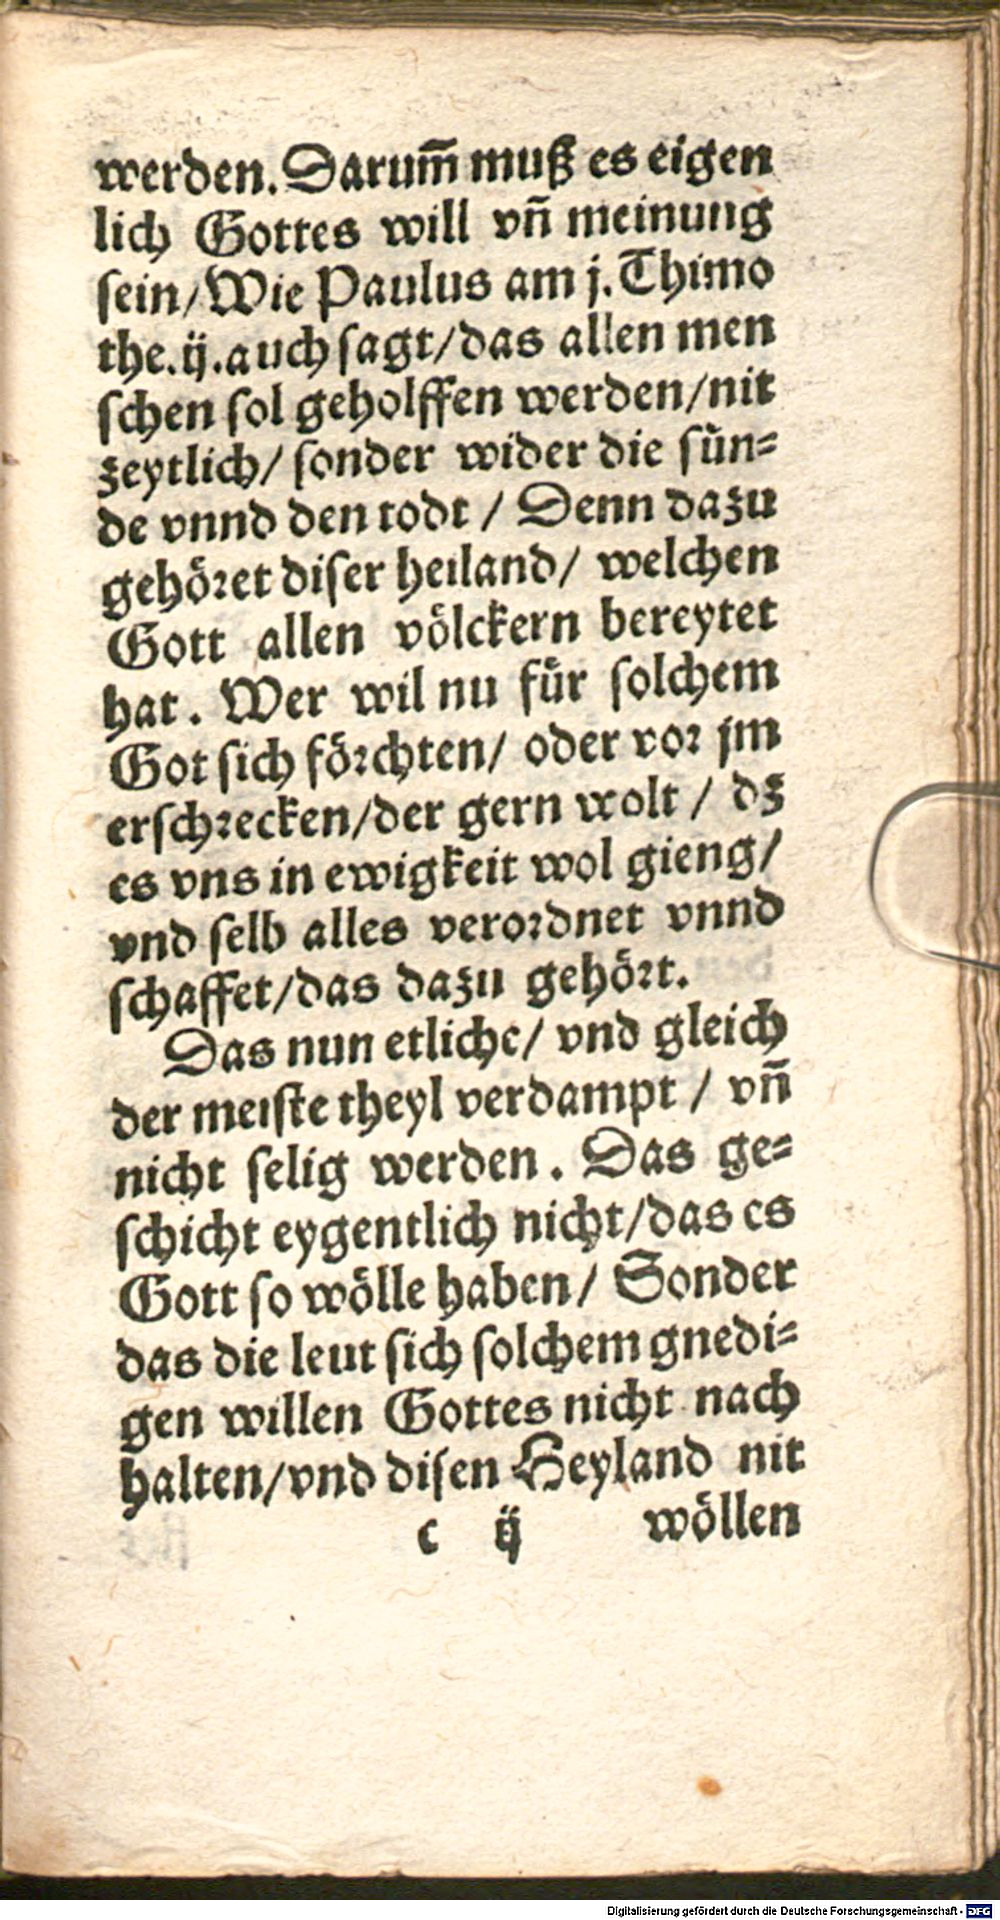 werden. Darum̄ muß es eigen
lich Gottes will vn̄ meinung
sein/ Wie Paulus am j. Thimo
the. ij. auch sagt/ das allen men
schen sol geholffen werden/ nit
zeytlich/ sonder wider die sün⸗
de vnnd den todt / Denn dazu
gehöret diser heiland/ welchen
Gott allen völckern bereytet
hat. Wer wil nu für solchem
Got sich förchten/ oder vor jm
erschrecken/ der gern wolt / dz
es vns in ewigkeit wol gieng/
vnd selb alles verordnet vnnd
schaffet/ das dazu gehört.
Das nun etliche/ vnd gleich
der meiste theyl verdampt / vn̄
nicht selig werden. Das ge⸗
schicht eygentlich nicht/ das es
Gott so wölle haben/ Sonder
das die leut sich solchem gnedi⸗
gen willen Gottes nicht nach
halten/ vnd disen Heyland nit
c ij wöllen
Digitalisierung gefördert durch die Deutsche Forschungsgemeinschaft - DFG